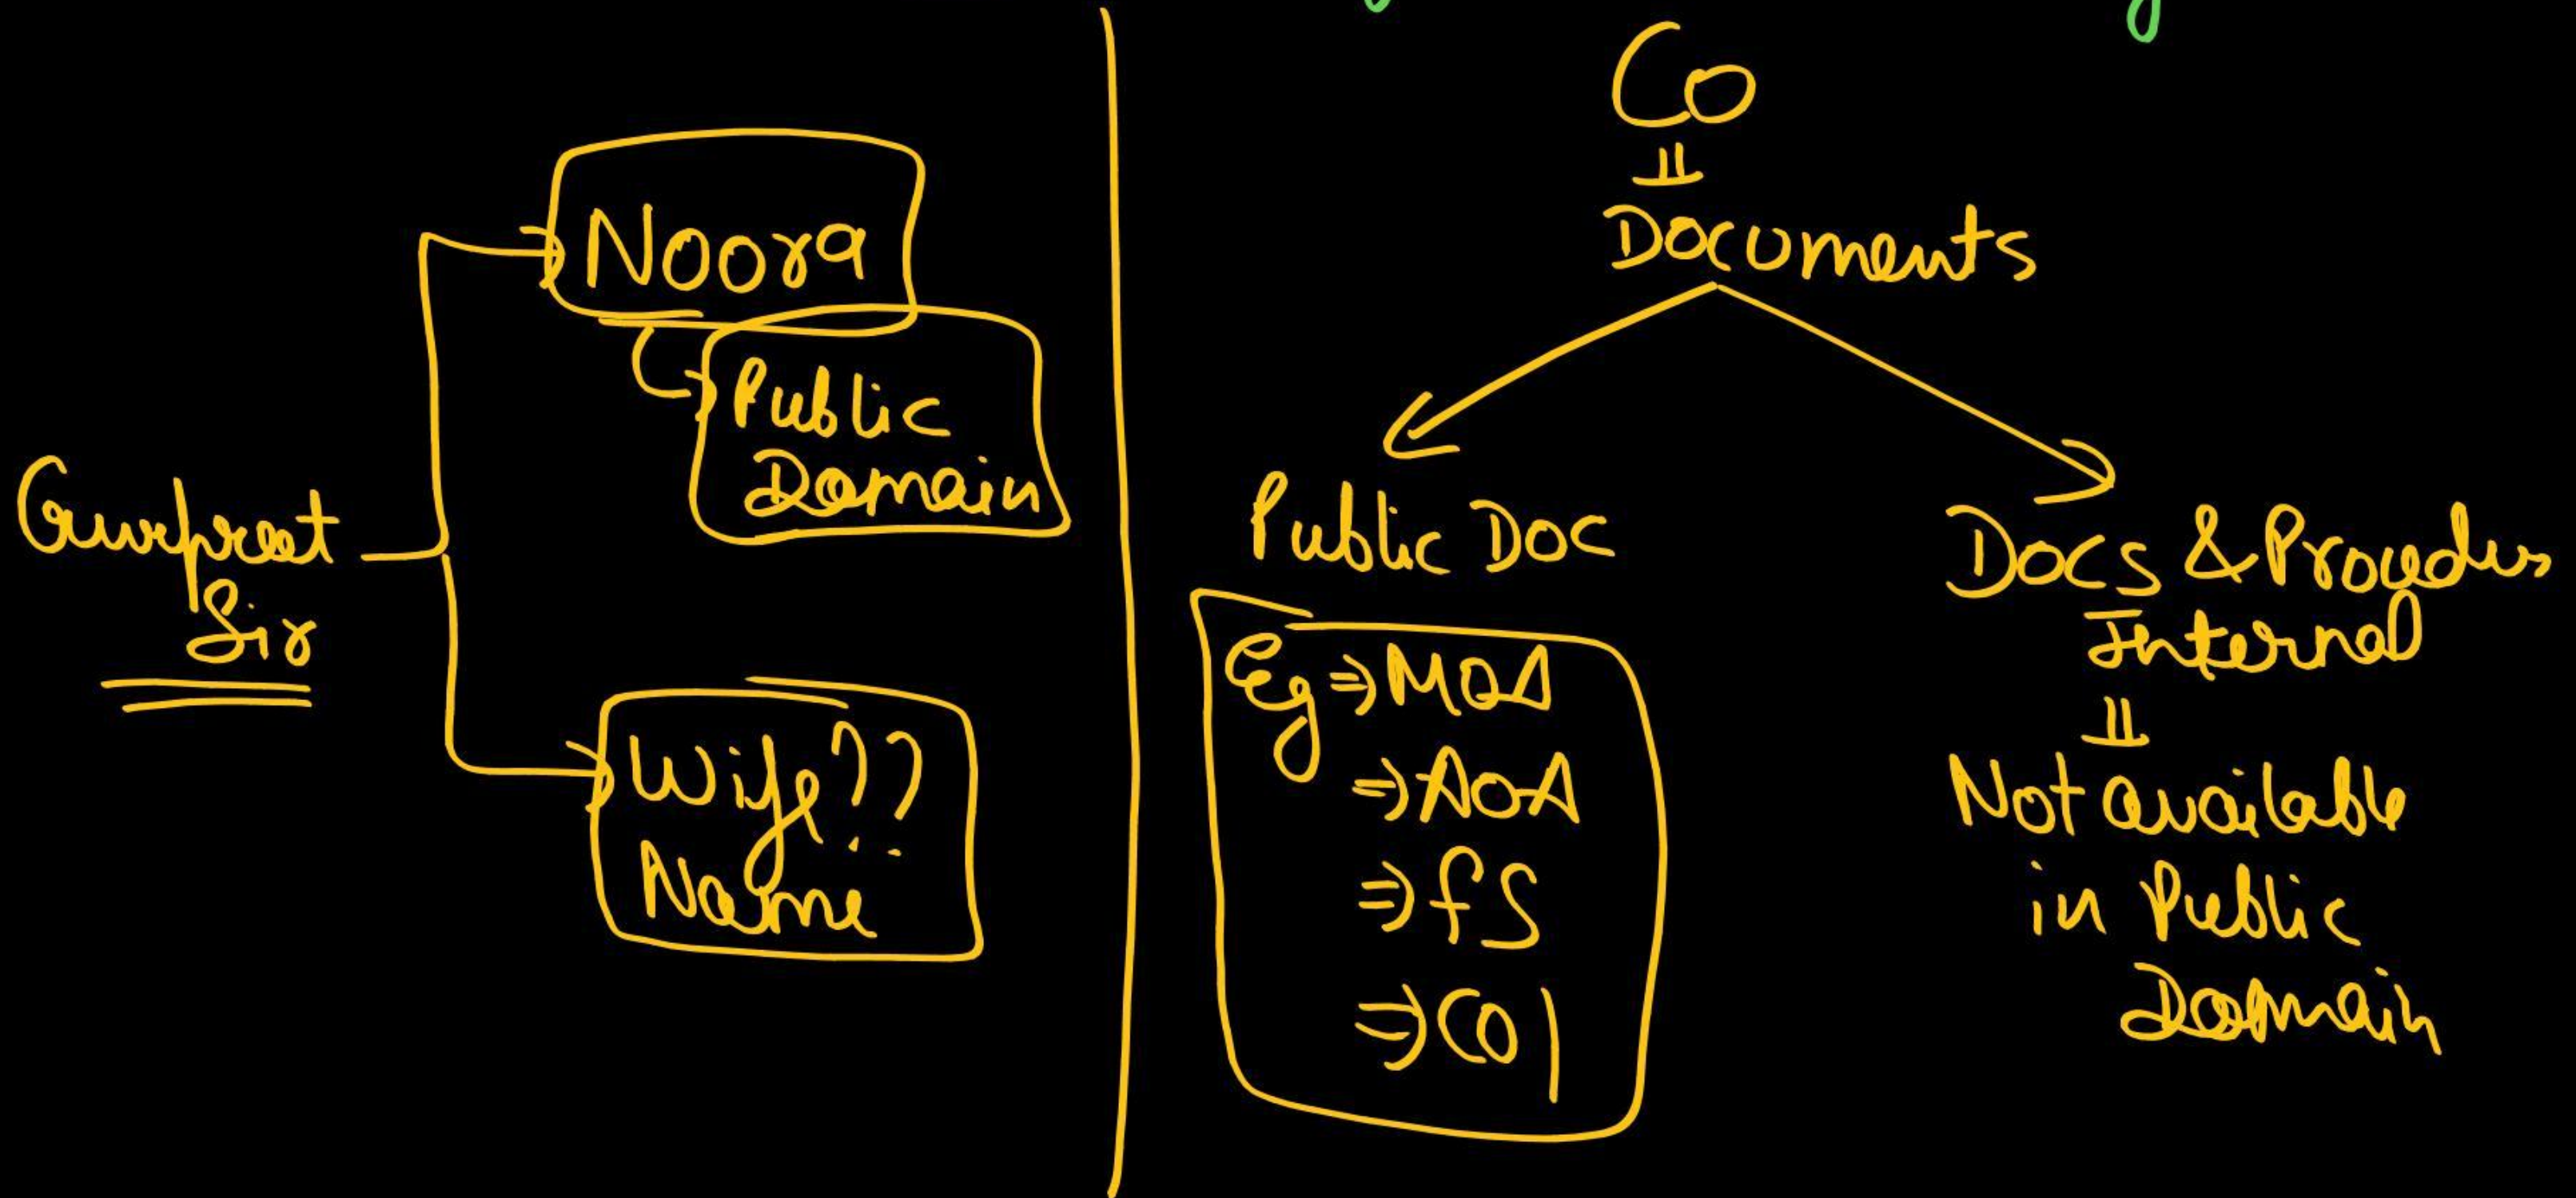 Noora
Public
Domain
Gurpreet
Sir
Wife??
Name
Co
Documents
Public Doc
Eg ⇒ MOA
⇒ AOA
⇒ fS
⇒ COI
Docs & Procedures
Internal
Not available
in Public
Domain